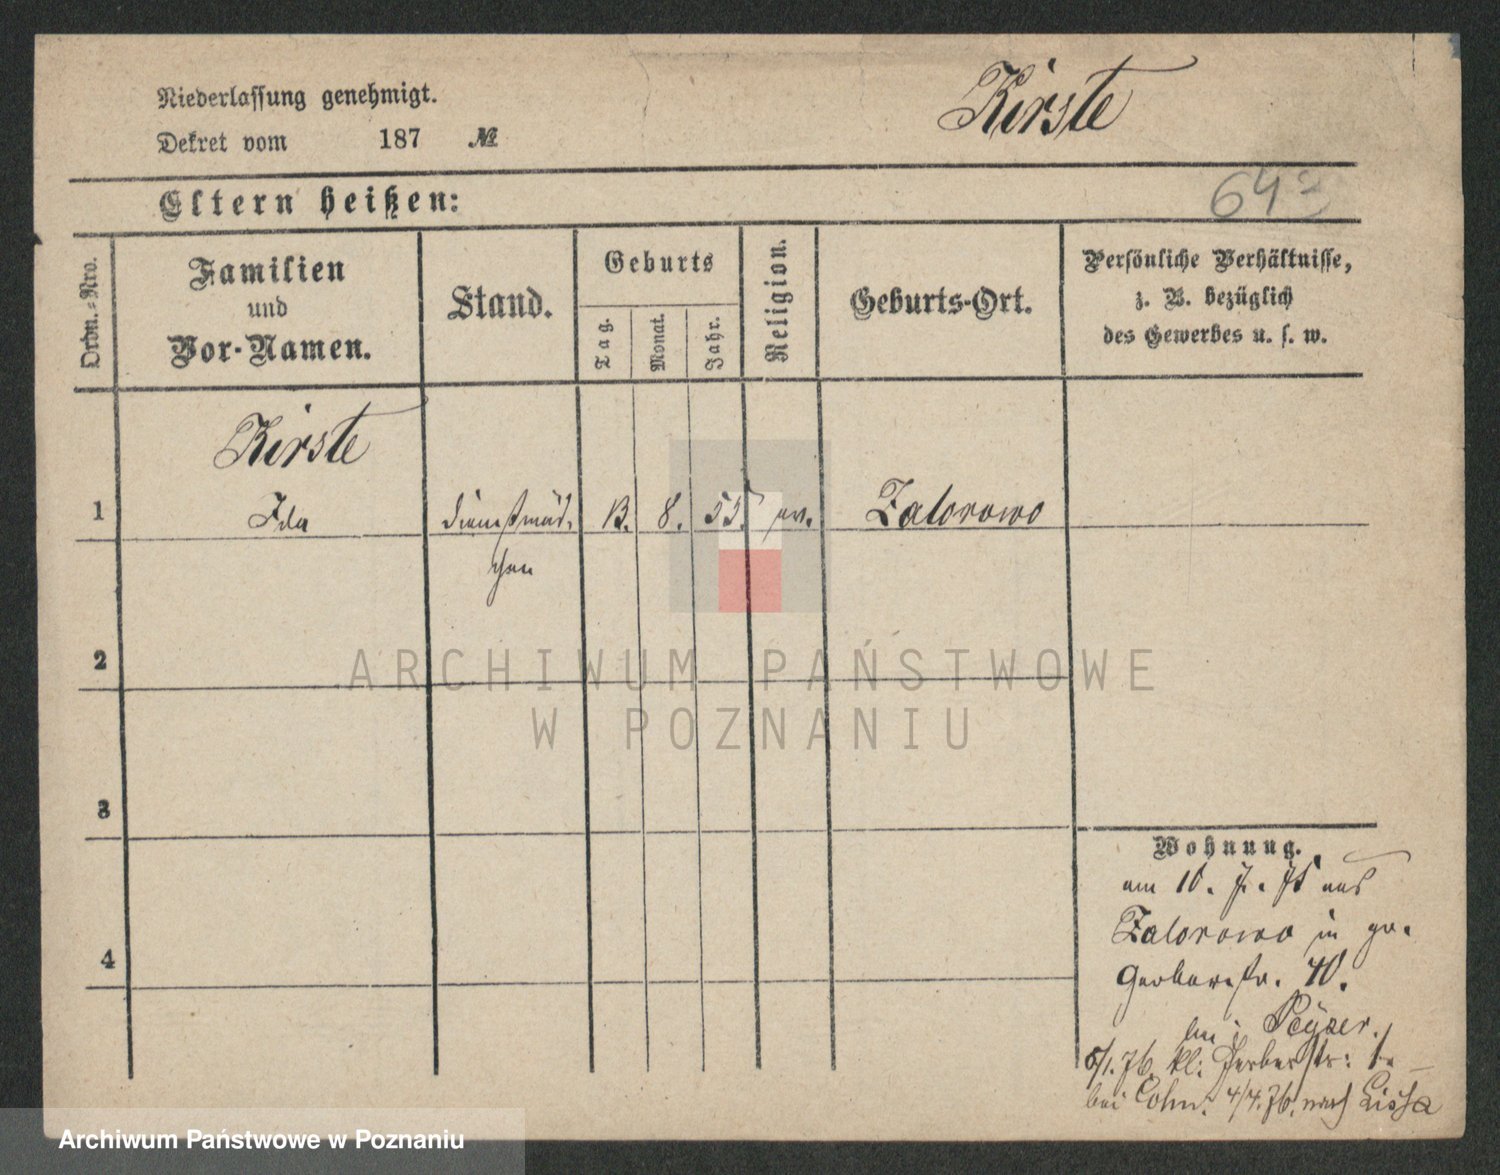 Niederlassung genehmigt.
Dekret vom 187 №
Kirste
Eltern heißen:
64
Ordn.-Nro.
Familien
und
Vor-Namen.
Stand.
Geburts
Tag.
Monat.
Jahr.
Religion.
Geburts-Ort.
Persönliche Verhältnisse,
z. B. bezüglich
des Gewerbes u. s. w.
Kirste
1 Ida Dienstmäd- 8. 55. ev. Zaborowo
chen
2
ARCHIWUM PAŃSTWOWE
W POZNANIU
3
Wohnung.
am 10. 75 aus
Zaborowo in gr.
4
Gerberstr. 40.
bei Peyser.
5/1. 76. kl: Gerberstr:
bei Cohn. 4/4. 76. nach Lissa
Archiwum Państwowe w Poznaniu